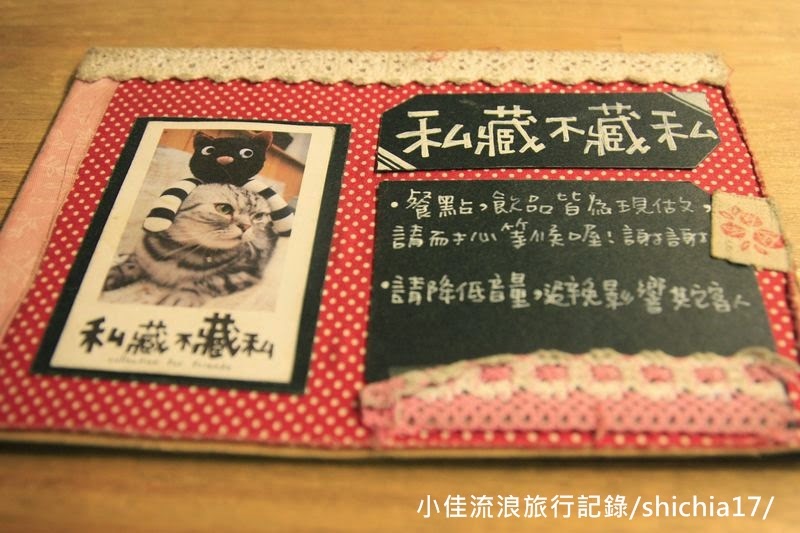 私藏不藏私
collection for friends
私藏不藏私
•餐點,飲品皆為現做,
請耐心等候喔!謝謝
•請降低音量,避免影響其它客人
小佳流浪旅行記錄/shichia17/